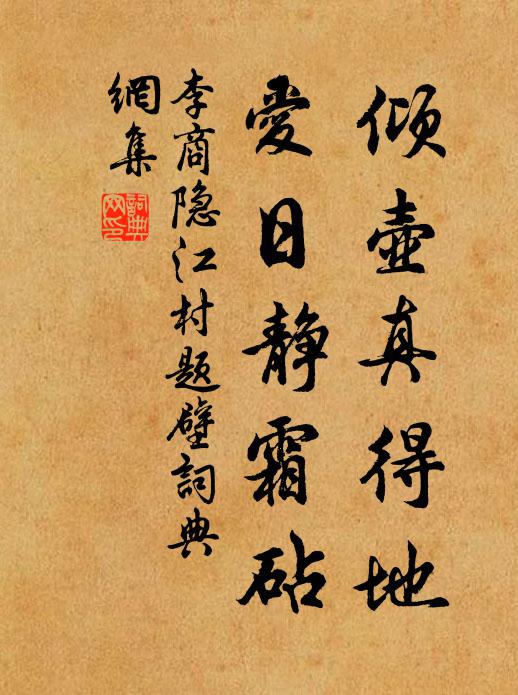 倾壺真得地
愛日静霜砧
李商隐江村题壁詞典
網集
詞典
网印